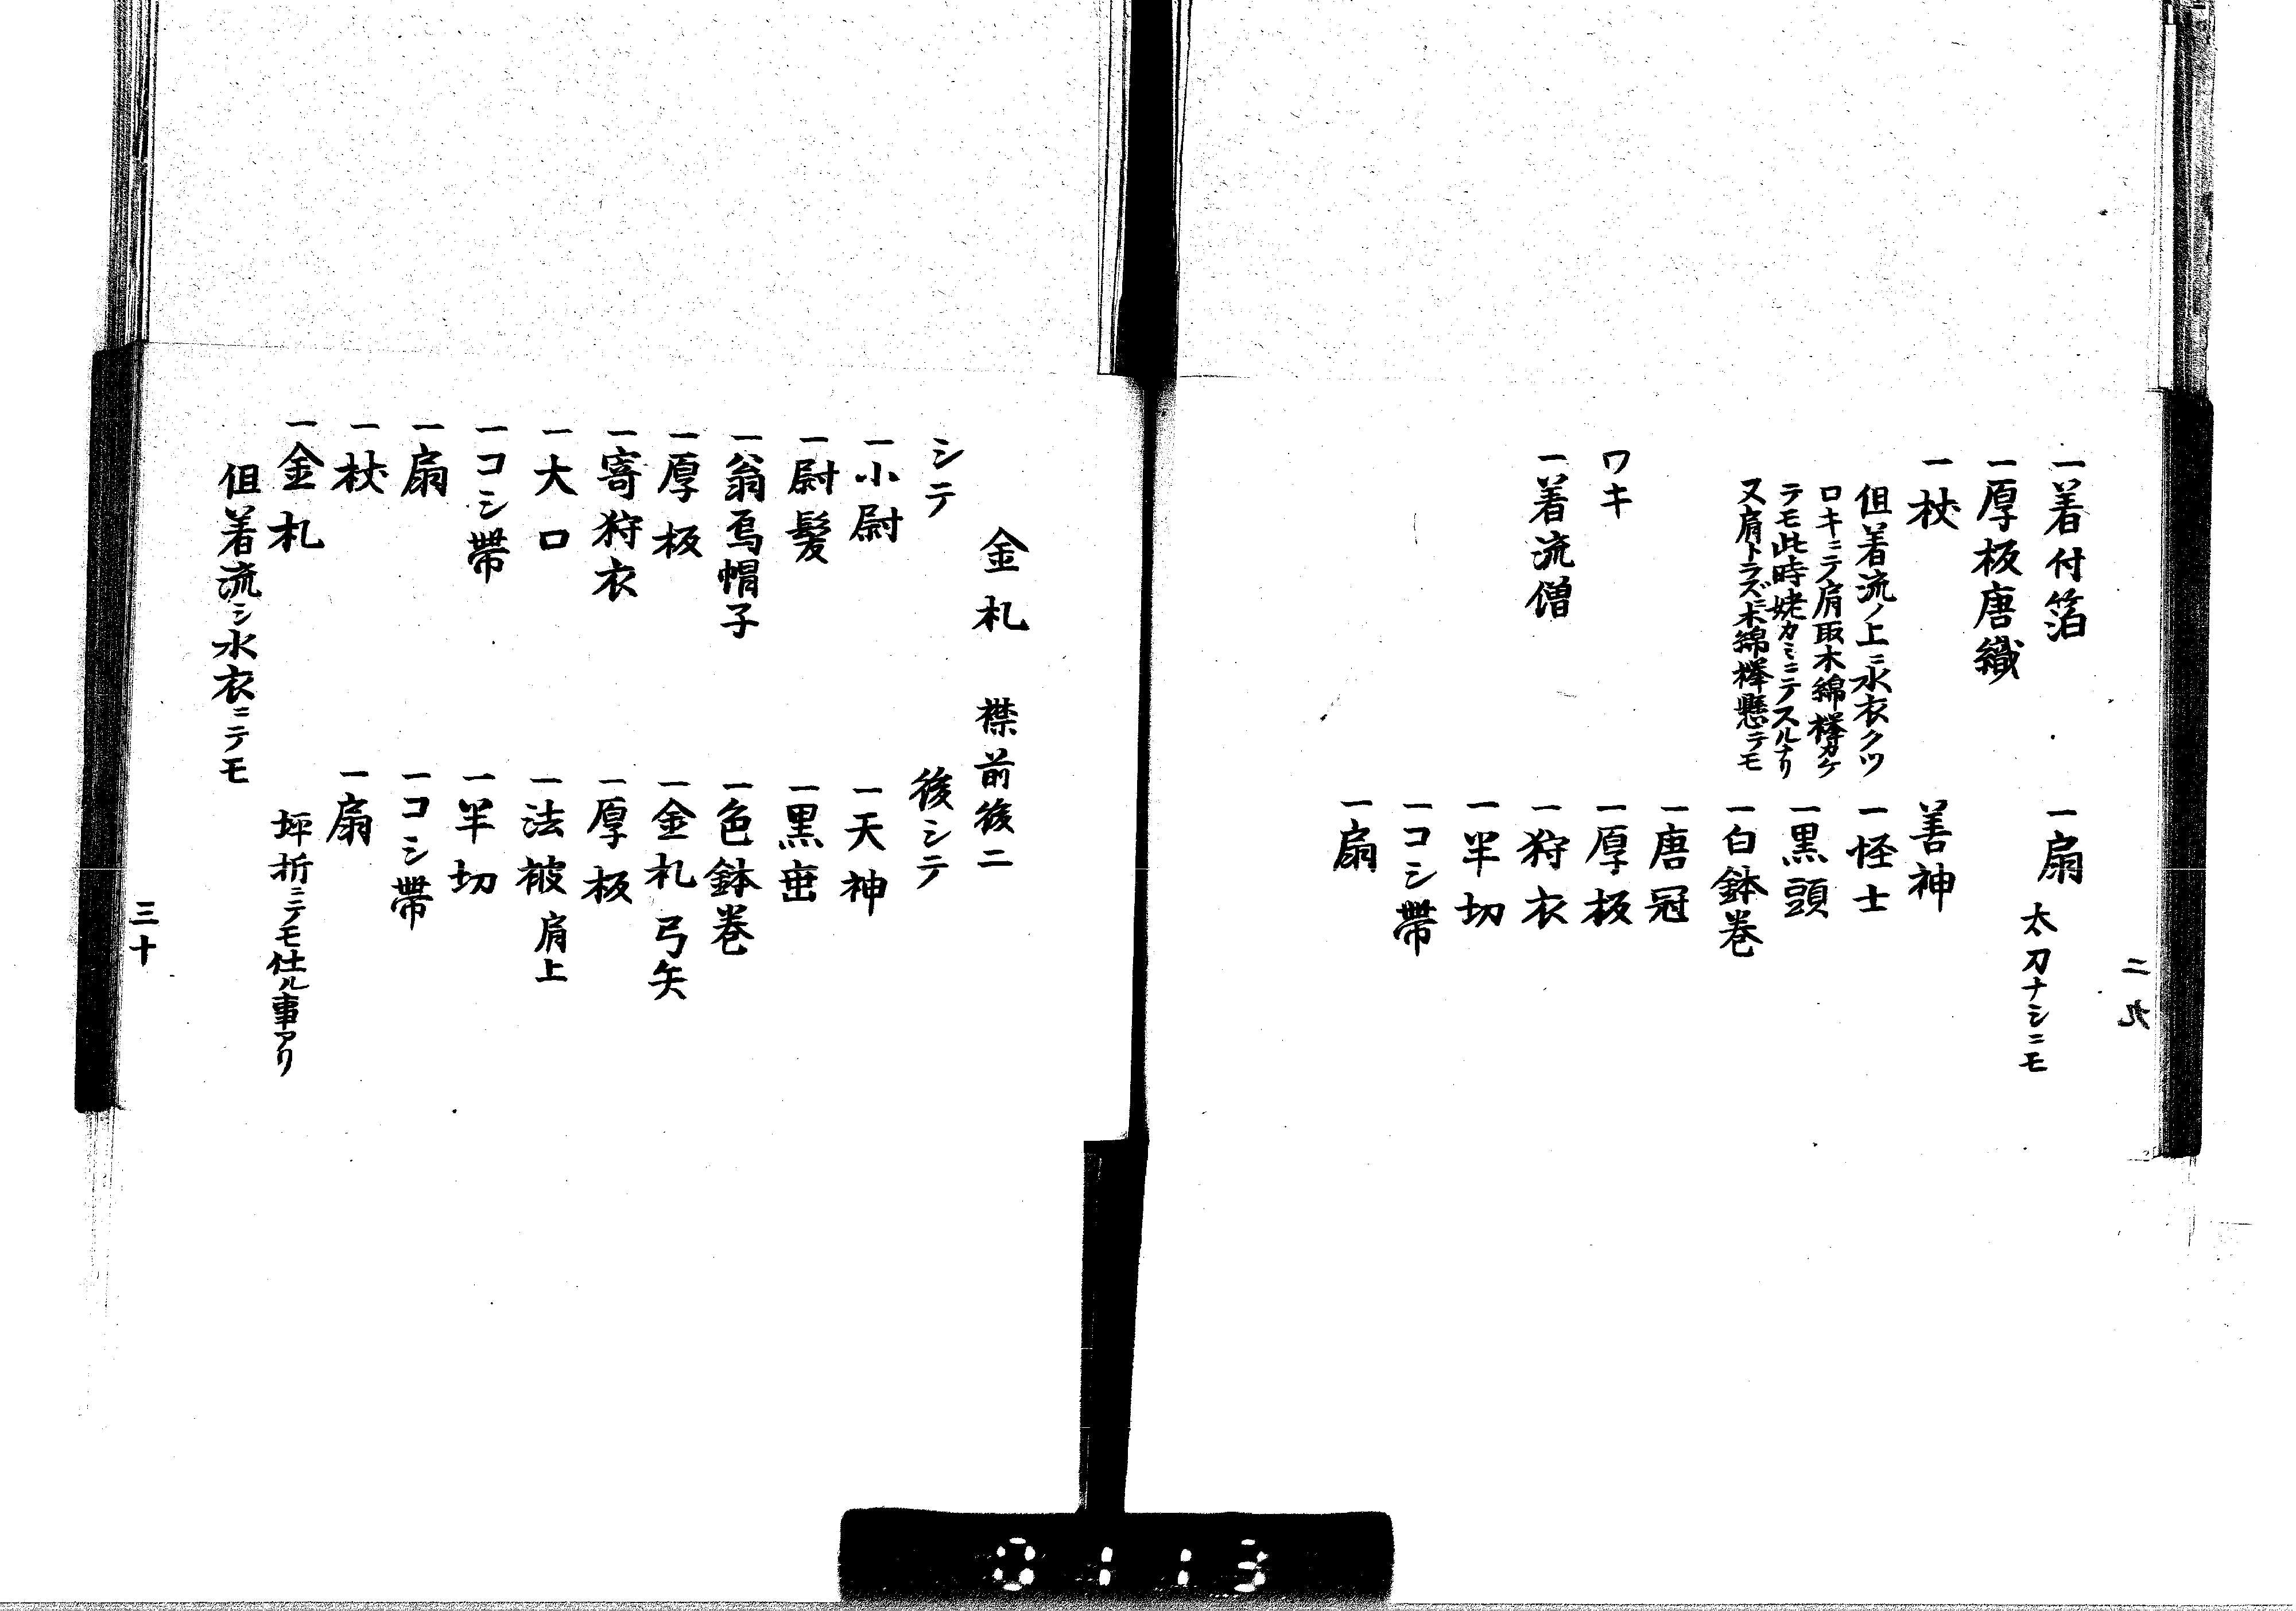 二九
一着付箔
一厚板唐織
一杖
但着流ノ上ニ水衣クツ
ロキニテ肩取木綿襷カケ
テモ此時姥カミニテスルナリ
又肩トラズ木綿襷懸テモ
ワキ
一着流僧
一扇
太刀ナシニモ
善神
一怪士
一黒頭
一白鉢巻
一唐冠
一厚板
一狩衣
一半切
一コシ帶
一扇
金札 襟前後二
シテ
一小尉
一尉髪
一翁烏帽子
一厚板
一寄狩衣
一大口
一コシ帶
一扇
一杖
一金札
但着流シ水衣ニテモ
後シテ
一天神
一黒垂
一色鉢巻
一金札 弓矢
一厚板
一法被 肩上
一半切
一コシ帶
一扇
坪折ニテモ仕ル事アリ
三十
0113